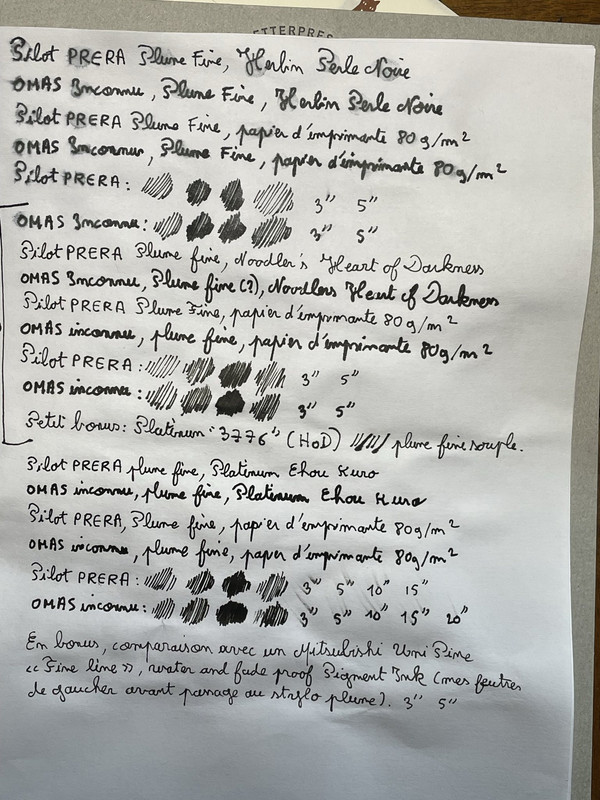 ETTERPRE
Pilot PRERA Plume Fine, Herbin Perle Noire
OMAS Inconnu, Plume Fine, Herbin Perle Noire
Pilot PRERA Plume Fine, papier d'imprimante 80g/m²
OMAS Inconnu, Plume Fine, papier d'imprimante 80g/m²
Pilot PRERA: 3" 5"
OMAS Inconnu: 3" 5"
Pilot PRERA Plume fine, Noodler's Heart of Darkness
OMAS Inconnu, Plume fine (?), Noodlers Heart of Darkness
Pilot PRERA Plume Fine, papier d'imprimante 80g/m²
OMAS inconnu, plume fine, papier d'imprimante 80g/m²
Pilot PRERA: 3" 5"
OMAS inconnu: 3" 5"
Petit bonus: Platinum "3776" (HoD) plume fine souple.
Pilot PRERA plume fine, Platinum Chou Kuro
OMAS inconnu, plume fine, Platinum Chou Kuro
Pilot PRERA, Plume fine, papier d'imprimante 80g/m²
OMAS inconnu, plume fine, papier d'imprimante 80g/m²
Pilot PRERA: 3" 5" 10" 15"
OMAS inconnu: 3" 5" 10" 15" 20"
En bonus, comparaison avec un Mitsubishi Uni Pine
« Fine line », water and fade proof Pigment Ink (mes feutres
de gaucher avant passage au stylo plume). 3" 5"